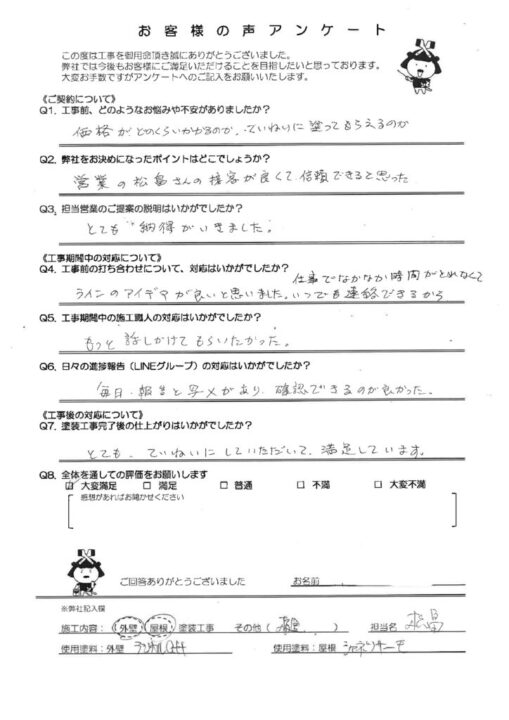 お客様の声アンケート
この度は工事を御用命頂き誠にありがとうございました。
弊社では今後もお客様にご満足いただけることを目指したいと思っております。
大変お手数ですがアンケートへのご記入をお願いいたします。
《ご契約について》
Q1. 工事前、どのようなお悩みや不安がありましたか？
価格がどのくらいかかるのか、ていねいに塗ってもらえるのか
Q2. 弊社をお決めになったポイントはどこでしょうか？
営業の松島さんの接客が良くて信頼できると思った
Q3. 担当営業のご提案の説明はいかがでしたか？
とても納得がいきました。
《工事期間中の対応について》
Q4. 工事前の打ち合わせについて、対応はいかがでしたか？
仕事でなかなか時間がとれなくて
ラインのアイデアが良いと思いました。いつでも連絡できるから
Q5. 工事期間中の施工職人の対応はいかがでしたか？
もっと話しかけてもらいたかった。
Q6. 日々の進捗報告（LINEグループ）の対応はいかがでしたか？
毎日、報告と写メがあり、確認できるのが良かった。
《工事後の対応について》
Q7. 塗装工事完了後の仕上がりはいかがでしたか？
とても、ていねいにしていただいて、満足しています。
Q8. 全体を通しての評価をお願いします
☑ 大変満足 □ 満足 □ 普通 □ 不満 □ 大変不満
感想があればお聞かせください
ご回答ありがとうございました お名前
※弊社記入欄
施工内容：外壁 屋根 塗装工事 その他（ ） 担当名 松島
使用塗料：外壁 使用塗料：屋根